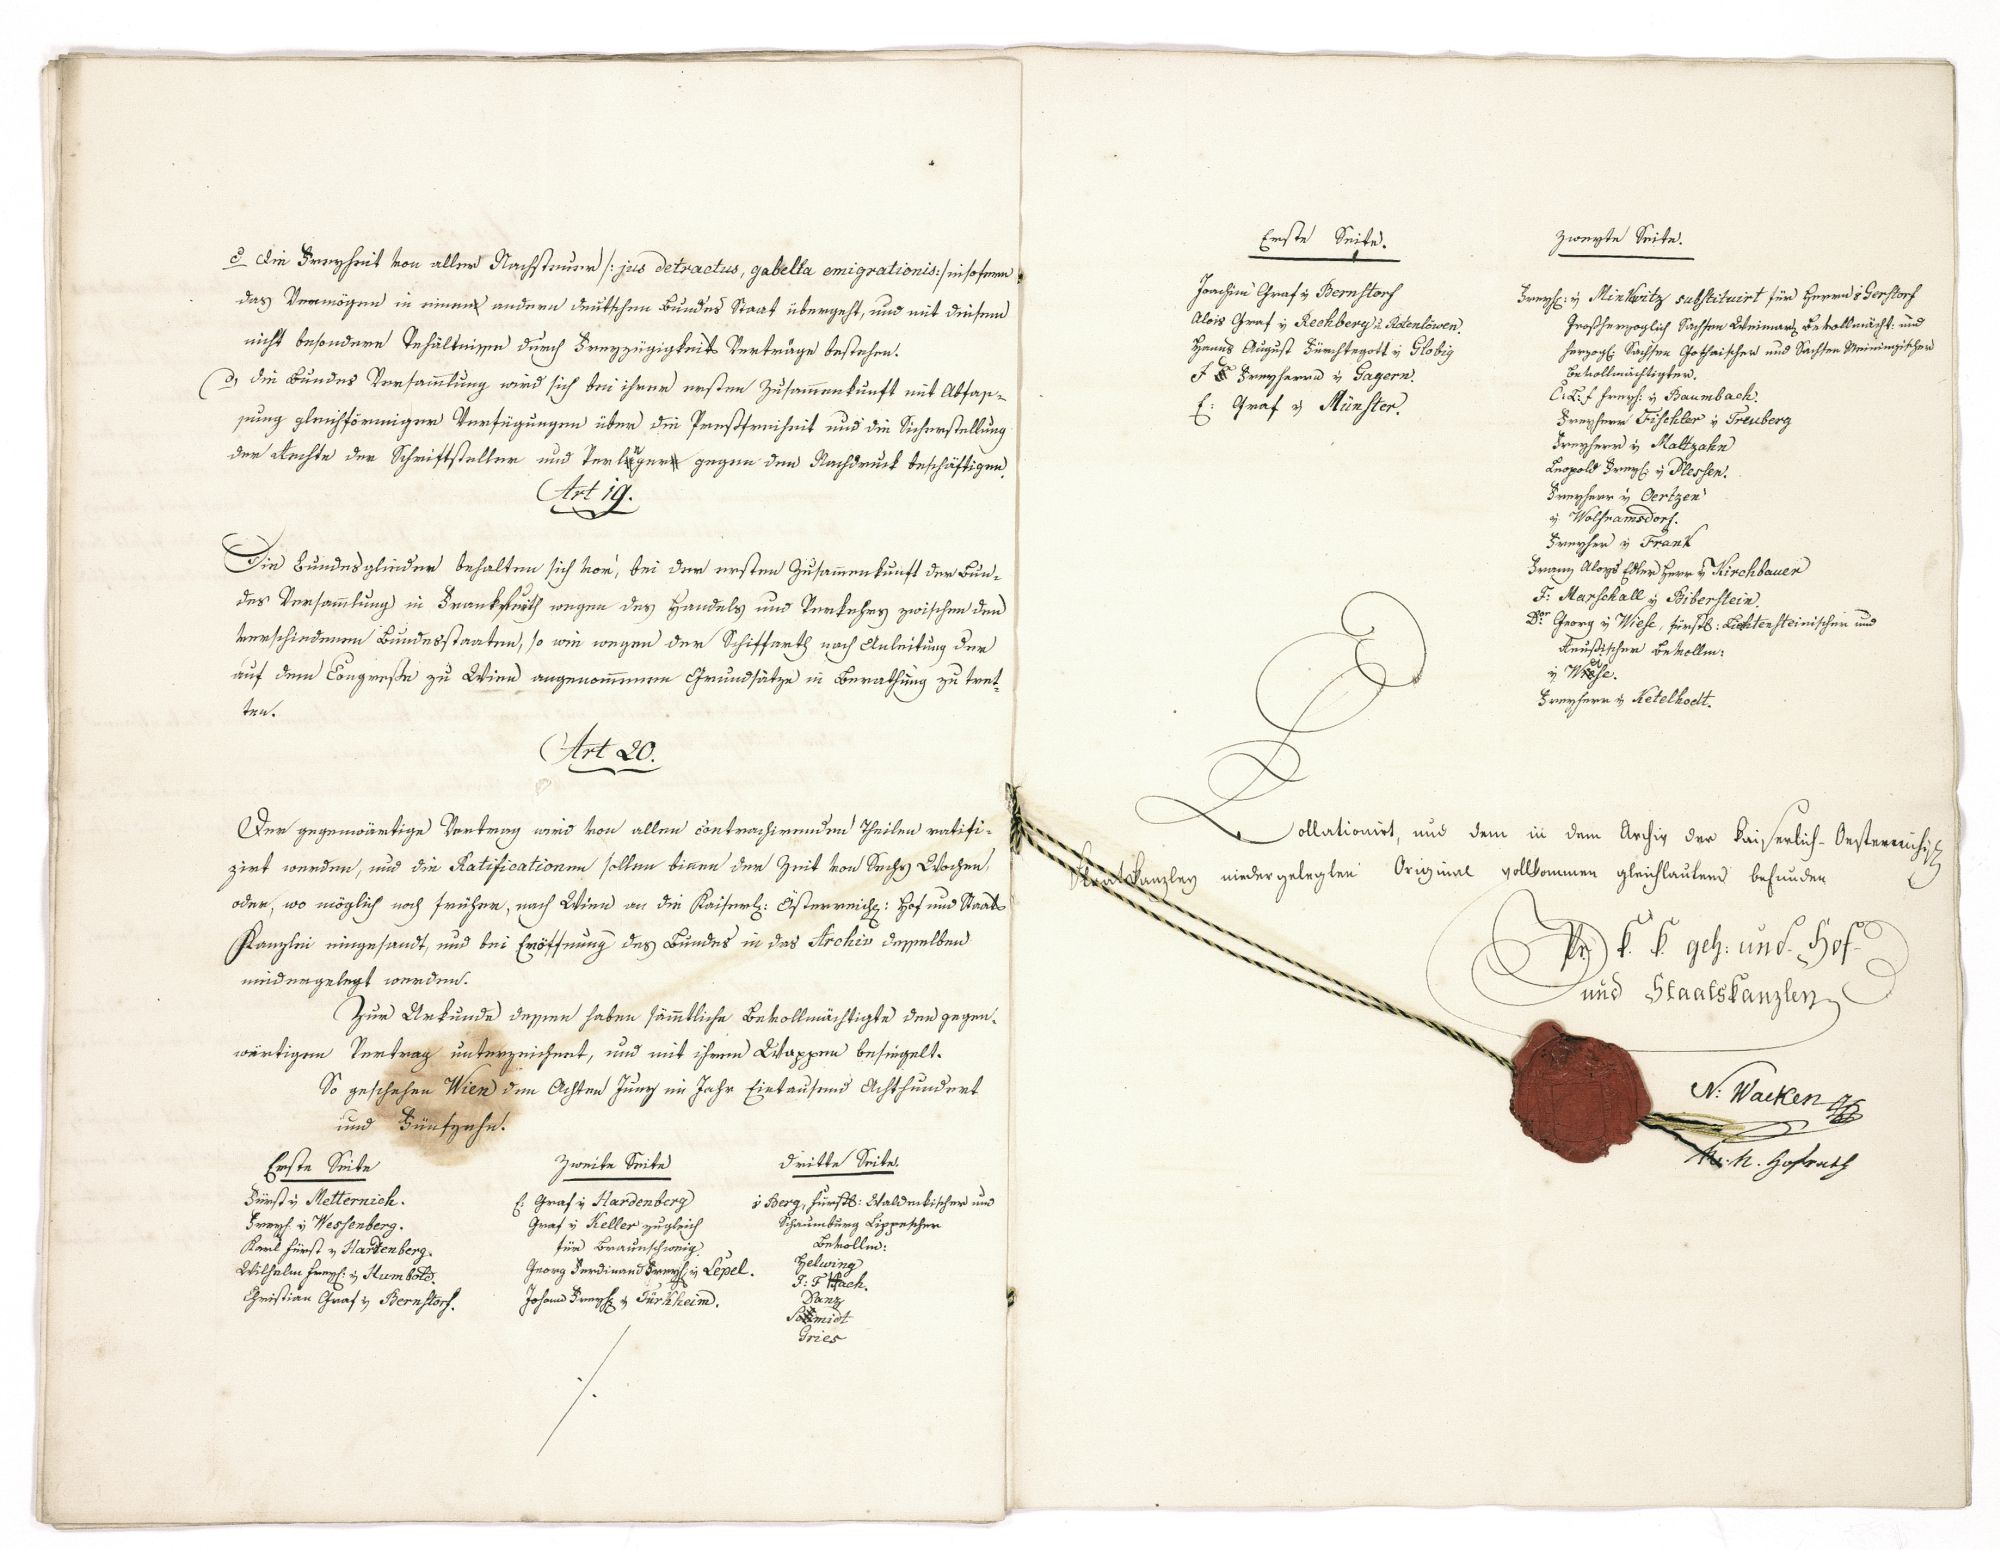 c die Freyheit von aller Nachsteuer /: jus detractus, gabella emigrationis:/ insofern
das Vermögen in einen andern deutschen Bundes Staat übergeht, und mit diesem
nicht besondere Verhältnisse durch Freyzügigkeits Verträge bestehen.
d, die Bundes Versammlung wird sich bei ihrer ersten Zusammenkunft mit Abfas-
sung gleichförmiger Verfügungen über die Preßfreiheit und die Sicherstellung
der Rechte der Schriftsteller und Verleger gegen den Nachdruck beschäftigen.
Art 19.
Die Bundesglieder behalten sich vor, bei der ersten Zusammenkunft der Bun-
des Versammlung in Frankfurth wegen des Handels und Verkehrs zwischen den
verschiedenen Bundesstaaten, so wie wegen der Schiffarth nach Anleitung der
auf dem Congreße zu Wien angenommenen Grundsätze in Berathung zu tret-
ten.
Art 20.
Der gegenwärtige Vertrag wird von allen contrachirenden Theilen ratifi-
zirt werden, und die Ratificationen sollen binen der Zeit von Sechs Wochen,
oder, wo möglich noch früher, nach Wien an die Kaiserl: Österreich: Hof und Staats
Kanzlei eingesandt, und bei Eröffnung des Bundes in das Archiv desselben
niedergelegt werden.
Zur Urkunde dessen haben sämmtliche Bevollmächtigte den gegen-
wärtigen Vertrag unterzeichnet, und mit ihrem Wappen besiegelt.
So geschehen Wien den Achten Juny im Jahr Eintausend Achthundert
und Fünfzehn.
Erste Seite
Fürst v Metternich.
Freyh. v Wessenberg.
Karl Fürst v Hardenberg.
Wilhelm Freyh: v Humbold.
Christian Graf v Bernstorf.
Zweite Seite
E: Graf v Hardenberg
Graf v Keller zugleich
für Braunschweig.
Georg Ferdinand Freyh v Lepel.
Johann Freyh v Türkheim.
Dritte Seite.
v Berg, Fürstl: Waldeckischer und
Schaumburg Lippescher
Bevollm:
Helwing
J: F Hach.
Danz
Schmidt
Gries
Erste Seite.
Joachim Graf v Bernstorf
Alois Graf v Rechberg u Rotenlöwen.
Hanns August Fürchtegott v Globig
F Freyherrn v Gagern.
E: Graf v Münster.
Zweyte Seite.
Freyh: v Minkwitz substituirt für Herrn v Gerstorf
Großherzoglich Sachsen Weimar Bevollmächt: und
Herzogl: Sachsen Gothaischer und Sachsen Meiningischer
Bevollmächtigter.
C: L: f Freyh: v Baumbach.
Freyherr Fischler v Treuberg
Freyherr v Maltzahn
Leopold Freyh: v Plessen.
Freyherr v Oertzen
v Wolframsdorf.
Freyher v Frank
Franz Aloys Edler Herr v Kirchbauer
F: Marschall v Biberstein.
Dor Georg v Wiese, Fürstl: Lichtensteinischer und
Reußischer Bevollm:
v Wiese.
Freyherr v Ketelhodt.
Collationirt, und dem in dem Archiv der Kaiserlich-Oesterreichisch
Staatskanzley niedergelegten Original vollkommen gleichlautend befunden
K. K. geh: und Hof-
und Staatskanzley
N: Wacken
Hofrath